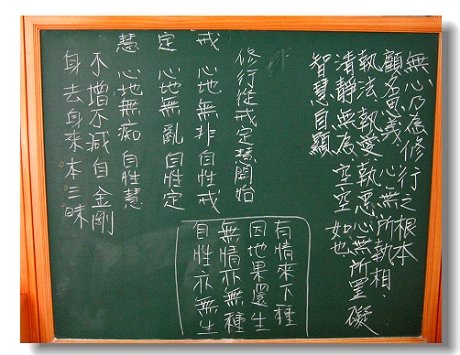 無心乃為修行之根本
顧名思義，心無所執相，
執法執愛執惡心無所罣礙
清靜無為空空如也
智慧自顯
修行從戒定慧開始
戒 心地無非自性戒
定 心地無亂自性定
慧 心地無痴自性慧
不增不減自金剛
身去身來本三昧
有情來下種
因地果還生
無情亦無種
自性亦無生